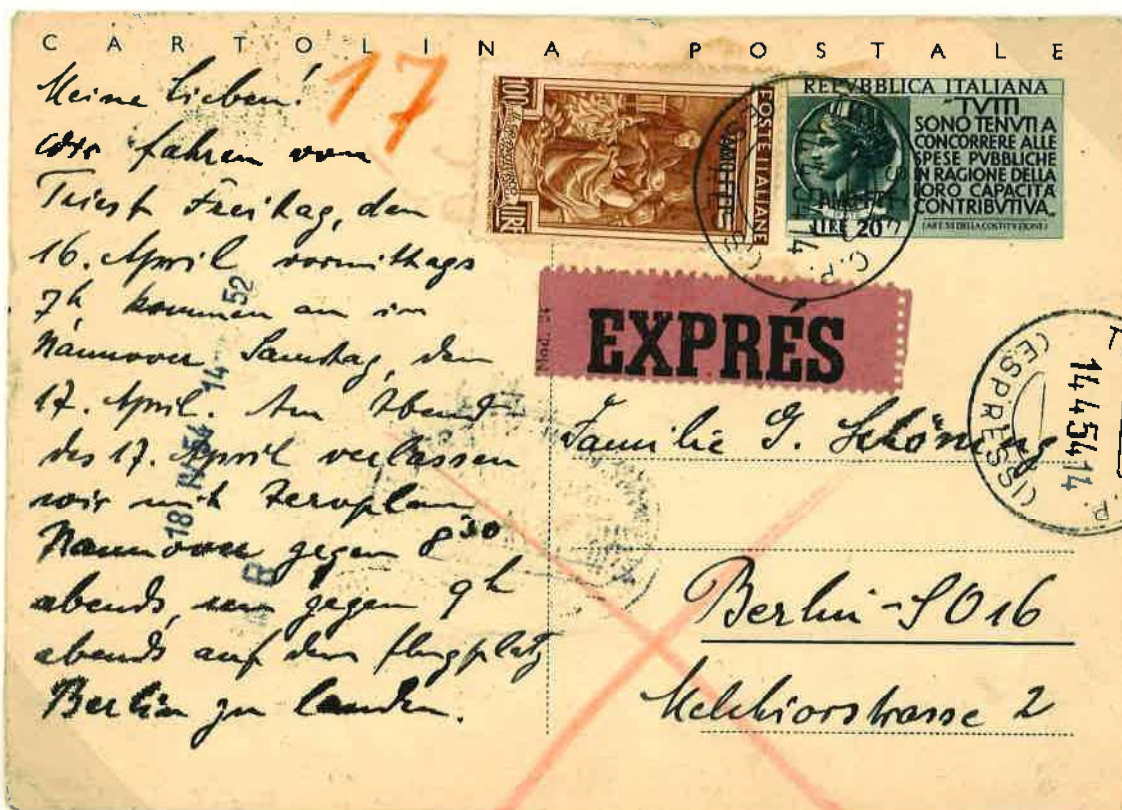 CARTOLINA POSTALE
17
Meine Lieben!
Wir fahren von
Triest Freitag, den
16. April vormittags
7h kommen an in
Hannover Samstag, den
17. April. Am Abend
des 17. April verlassen
wir mit Aeroplan
Hannover gegen 8 30
abends, um gegen 9h
abends auf dem Flugplatz
Berlin zu landen.
100 LIRE
POSTE ITALIANE
AMG-FTT
REPVBBLICA ITALIANA
"TVTTI
SONO TENVTI A
CONCORRERE ALLE
SPESE PVBBLICHE
IN RAGIONE DELLA
LORO CAPACITÀ
CONTRIBVTIVA"
(ART. 53 DELLA COSTITVZIONE)
AMG-FTT
LIRE 20
Mod. 24
EXPRÉS
14 4 54 14
(ESPRESSI)
18 IV 54 14 52
Familie G. Schöning
Berlin-SO16
Melchiorstrasse 2